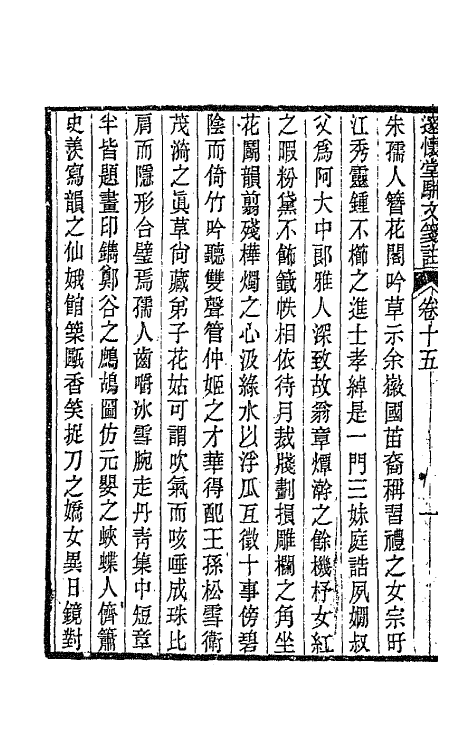 邃懷堂駢文箋註 卷十五 一
朱孺人簪花閣吟草示余嶽國苗裔稱習禮之女宗旴
江秀靈鍾不櫛之進士孝綽是一門三妹庭誥夙嫻叔
父爲阿大中郎雅人深致故翁章燂瀚之餘機杼女紅
之暇粉黛不飾籤帙相依待月裁牋劃損雕欄之角坐
花鬬韻翦殘樺燭之心汲綠水以浮瓜互徵十事傍碧
陰而倚竹吟聽雙聲管仲姬之才華得配王孫松雪衛
茂漪之眞草尙藏弟子花姑可謂吹氣而咳唾成珠比
肩而隱形台壁焉孺人齒嚼冰雪腕走丹靑集中短章
半皆題畫印鐫鄭谷之鷓鴣圖仿元嬰之蛺蝶人儕簫
史羨寫韻之仙娥館築甌香笑捉刀之嬌女異日鏡對